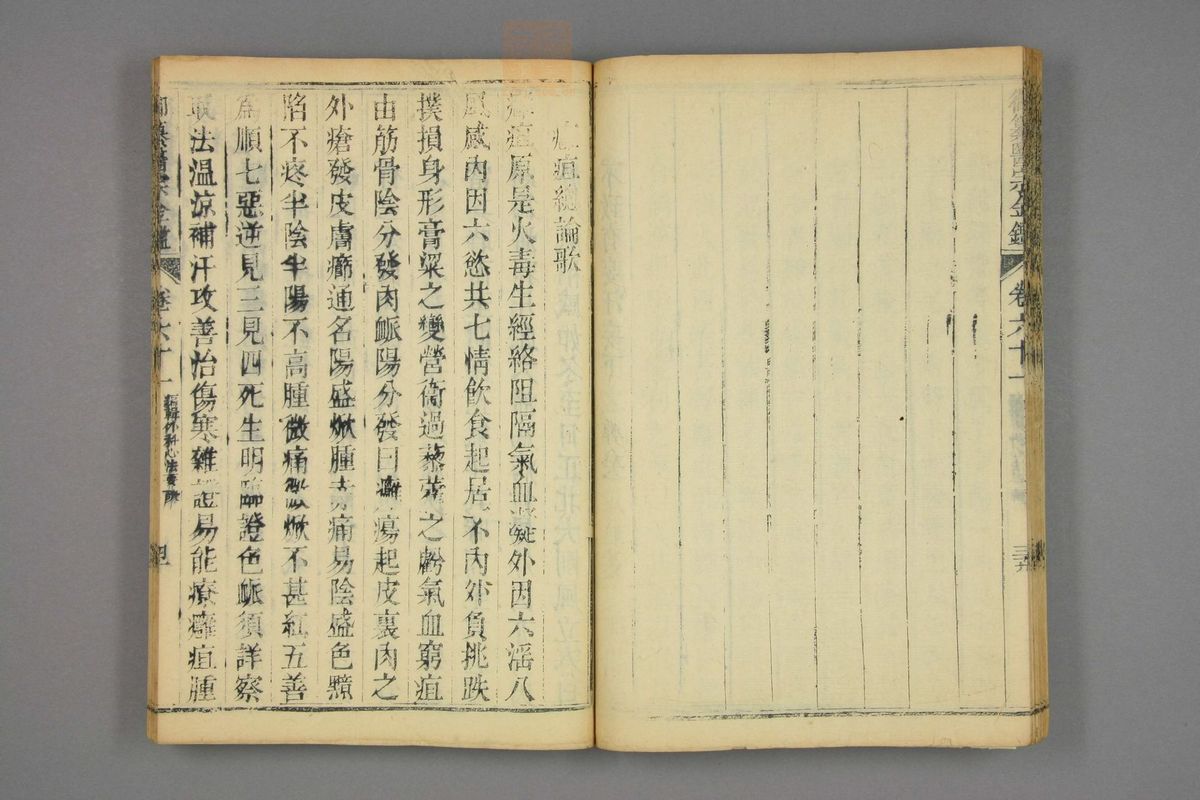 御纂醫宗金鑑 卷六十一
癰疽總論歌
癰疽原是火毒生經絡阻隔氣血凝外因六淫八
風感內因六慾共七情飲食起居不內外負挑跌
撲損身形膏粱之變營衛過藜藿之虧氣血窮疽
由筋骨陰分發肉脈陽分發曰癰瘍起皮裏肉之
外瘡發皮膚癤通名陽盛焮腫赤痛易陰盛色黯
陷不疼半陰半陽不高腫微痛微焮不甚紅五善
為順七惡逆見三見四死生明臨證色脈須詳察
取法溫涼補汗攻善治傷寒雜證易能療癰疽腫
御纂醫宗金鑑 卷六十一 編輯外科心法要訣 四